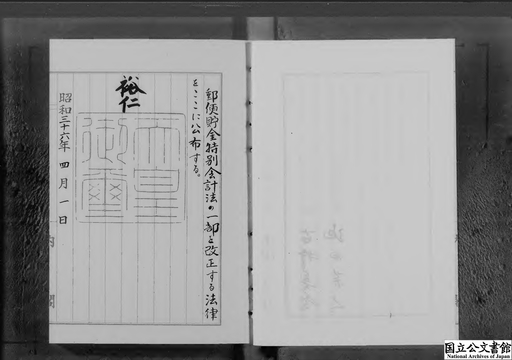 郵便貯金特別会計法の一部を改正する法律
をここに公布する。
裕仁
天皇
御璽
昭和三十六年四月一日
内閣
国立公文書館
National Archives of Japan